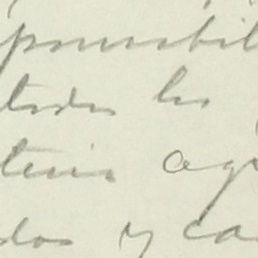 ponsabil
todos los
teria agr
dos y ca